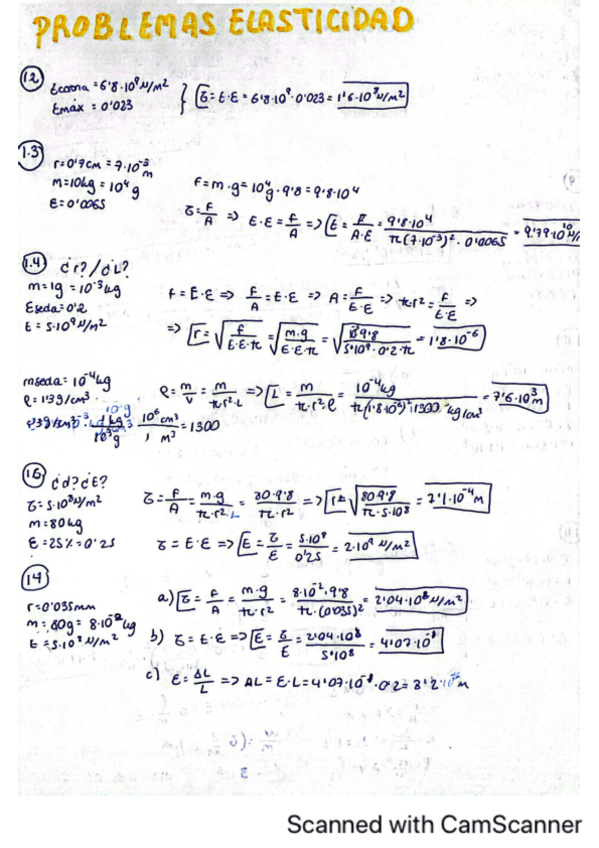 PROBLEMAS ELASTICIDAD
1.2
Ecorona = 6'8·10⁹ N/m²
Emáx = 0'023
σ = E·ε = 6'8·10⁹·0'023 = 1'6·10⁸ N/m²
1.3
r = 0'7cm = 7·10⁻³ m
m = 10kg = 10⁴ g
ε = 0'0065
F = m·g = 10⁴g·9'8 = 9'8·10⁴
σ = F/A => E·ε = F/A => E = F/A·ε = 9'8·10⁴/π(7·10⁻³)²·0'0065 = 9'79·10¹⁰ N/
1.4 ¿r?/¿L?
m = 1g = 10⁻³ kg
Eseda = 0'2
E = 5·10⁹ N/m²
F = E·ε => F/A = E·ε => A = F/E·ε => π·r² = F/E·ε =>
=> r = √F/E·ε·π = √m·g/E·ε·π = √10⁻³9'8/5·10⁹·0'2·π = 1'8·10⁻⁶
mseda = 10⁻⁴ kg
ρ = 1'3g/cm³
ρ = m/v = m/π·r²·L => L = m/π·r²·ρ = 10⁻⁴kg/π(1'8·10⁻⁶)²·1300 kg/cm³ = 7'6·10³ m
1'3g/cm³ · 1 kg/10³g · 10⁶ cm³/1 m³ = 1300
1.6 ¿d? ¿E?
σ = 5·10⁸ N/m²
m = 80kg
ε = 25% = 0'25
σ = F/A = m·g/π·r² = 80·9'8/π·r² => r = √80·9'8/π·5·10⁸ = 7'1·10⁻⁴ m
σ = E·ε => E = σ/ε = 5·10⁸/0'25 = 2·10⁹ N/m²
14
r = 0'035mm
m = 80g = 8·10⁻² kg
E = 5·10⁸ N/m²
a) σ = F/A = m·g/π·r² = 8·10⁻²·9'8/π·(0'035)² = 2'04·10⁸ N/m²
b) σ = E·ε => ε = σ/E = 2'04·10⁸/5·10⁸ = 4'07·10⁻¹
c) ε = ΔL/L => ΔL = ε·L = 4'07·10⁻¹·0'2 = 8'2·10⁻² m
Scanned with CamScanner